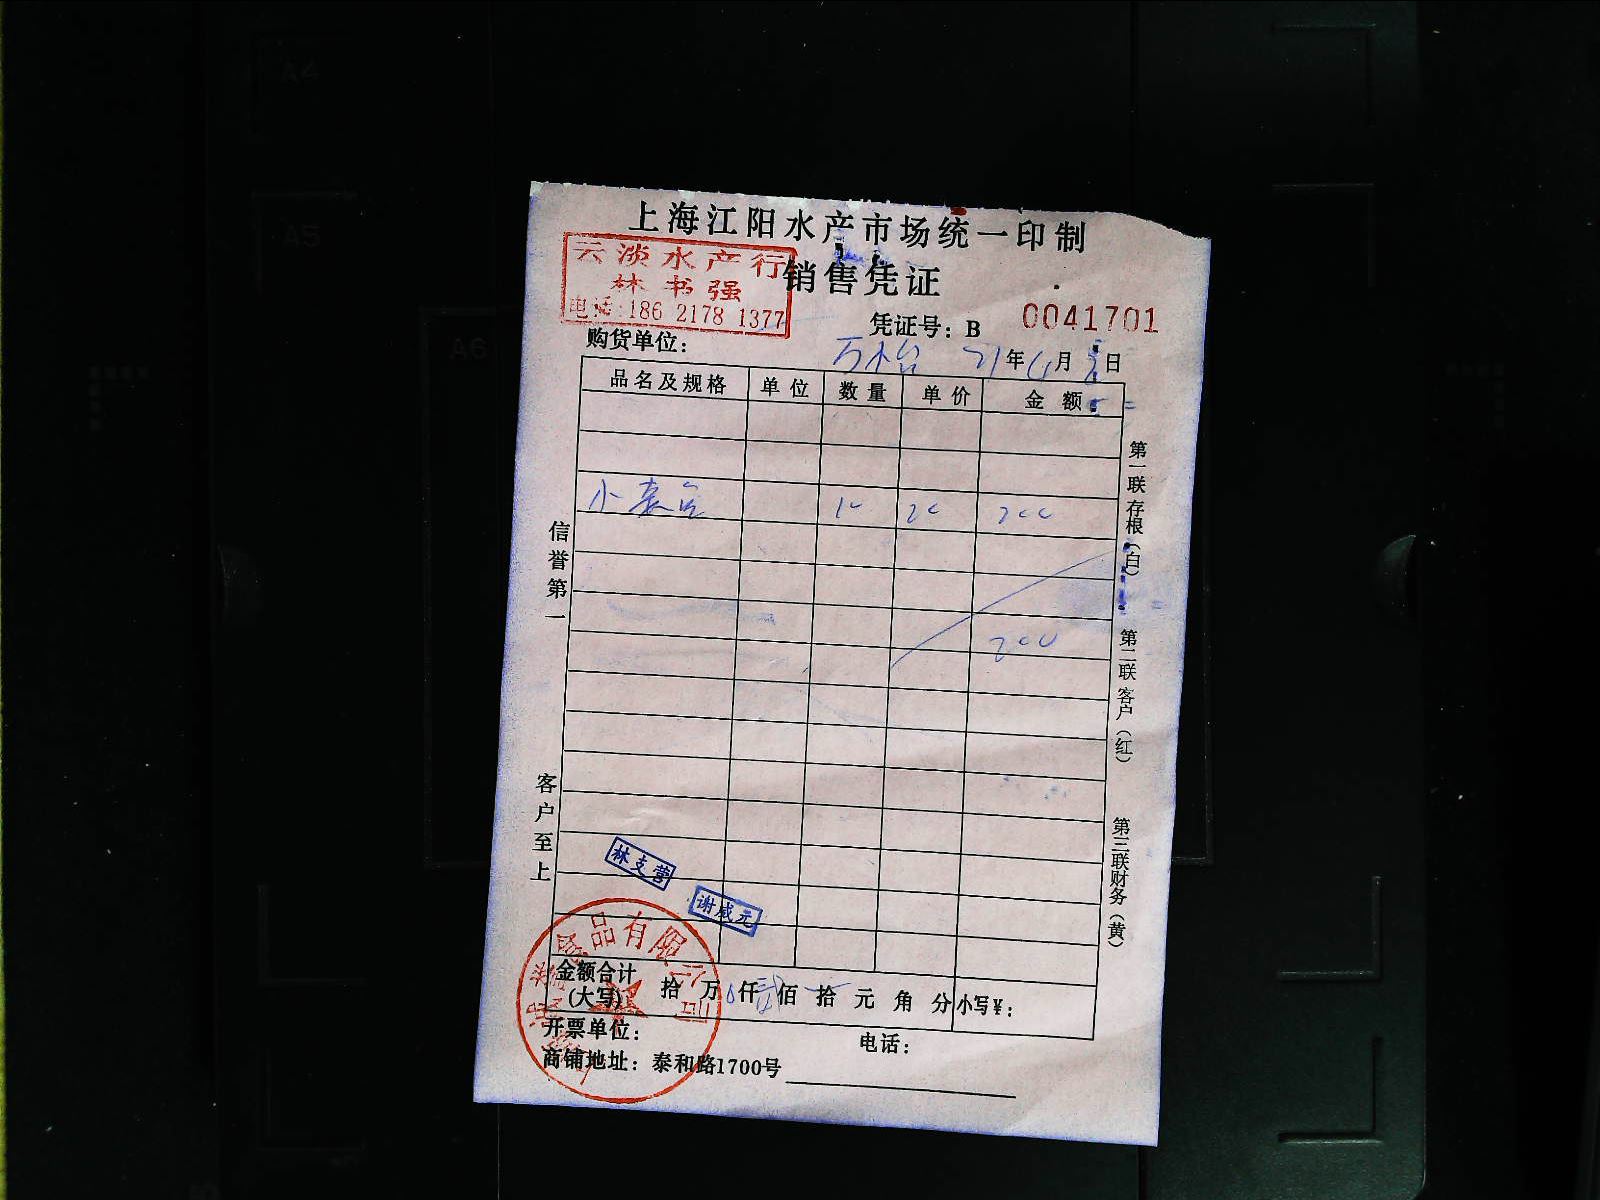 上海江阳水产市场统一印制
销售凭证
云淡水产行
林书强
电话:186 2178 1377
凭证号: B 0041701
购货单位:
21年4月 日
品名及规格 单位 数量 单价 金额
小 10 20 200
200
信誉第一
客户至上
第一联存根(白)
第二联客户(红)
第三联财务(黄)
林支营
谢咸元
食品有限公司
金额合计(大写) 拾 万 仟 贰 佰 拾 元 角 分 小写¥:
开票单位: 电话:
商铺地址: 泰和路1700号
A4
A5
A6